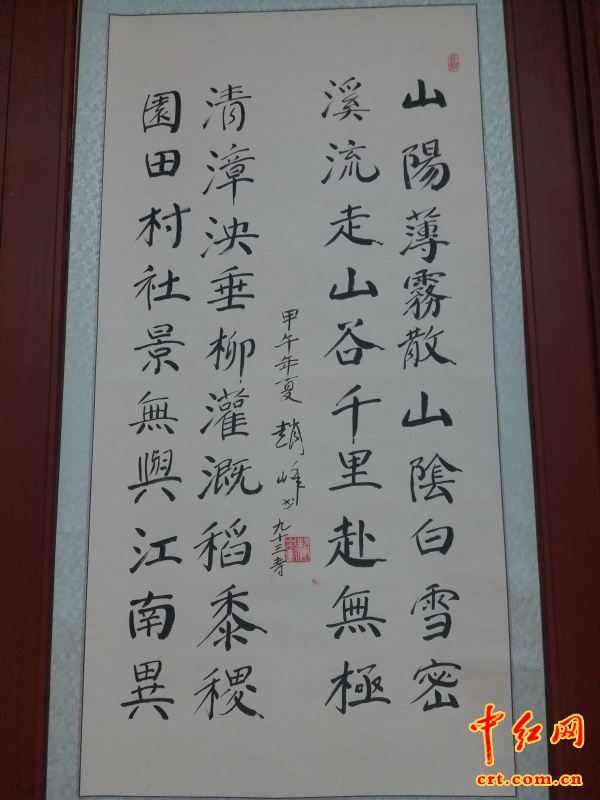 山陽薄霧散山陰白雪密
溪流走山谷千里赴無極
甲午年夏 趙峰书 九十三寿
清漳泱垂柳灌溉稻黍稷
園田村社景無與江南異
中红网
crt.com.cn